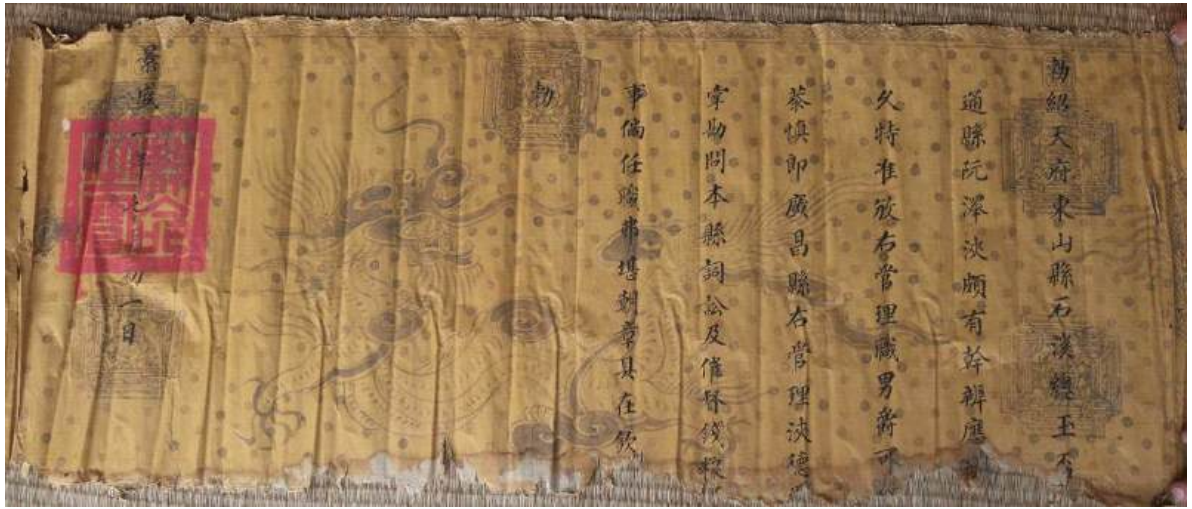 勅紹天府東山縣石溪總玉
通縣阮澤浹頗有幹辦應
久特准放右管理職男爵可
慎即廣昌縣右管理浹德
勘問本縣詞訟及催督錢
事倘任職弗堪朝章具在欽
勅
景盛年月初一日